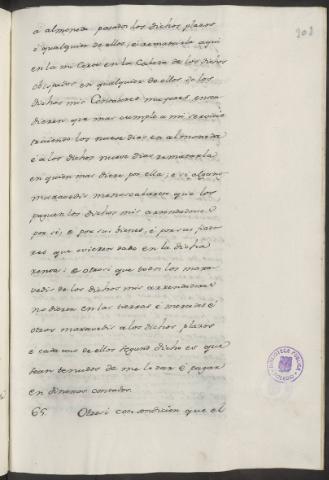 202
á almoneda pasados los dichos plazos
é qualquier de ellos, é rematarla aqui
en la mi Corte en la Cabeza de los dichos
obispados en qualquier de ellos do los
dichos mis Contadores mayores enten
dieren que mas cumple á mi servicio
trayendo los nueve dias en almoneda
é á los dichos nueve dias rematarla
en quien mas diere por ella; é si algunos
maravedis menoscabaren que los
paguen los dichos mis arrendadores
por sí é por sus bienes, é por sus fiado
res que ovieren dado en la dicha
renta; é otrosi que todos los mara
vedis de los dichos mis arrendadores
no dieren en las tierras é mercedes é
otros maravedis á los dichos plazos
é cada uno de ellos segund dicho es que
sean tenudos de me lo dar é pagar
en dineros contados.
65. Otrosi con condicion que el
BIBLIOTECA PUBLICA
TOLEDO